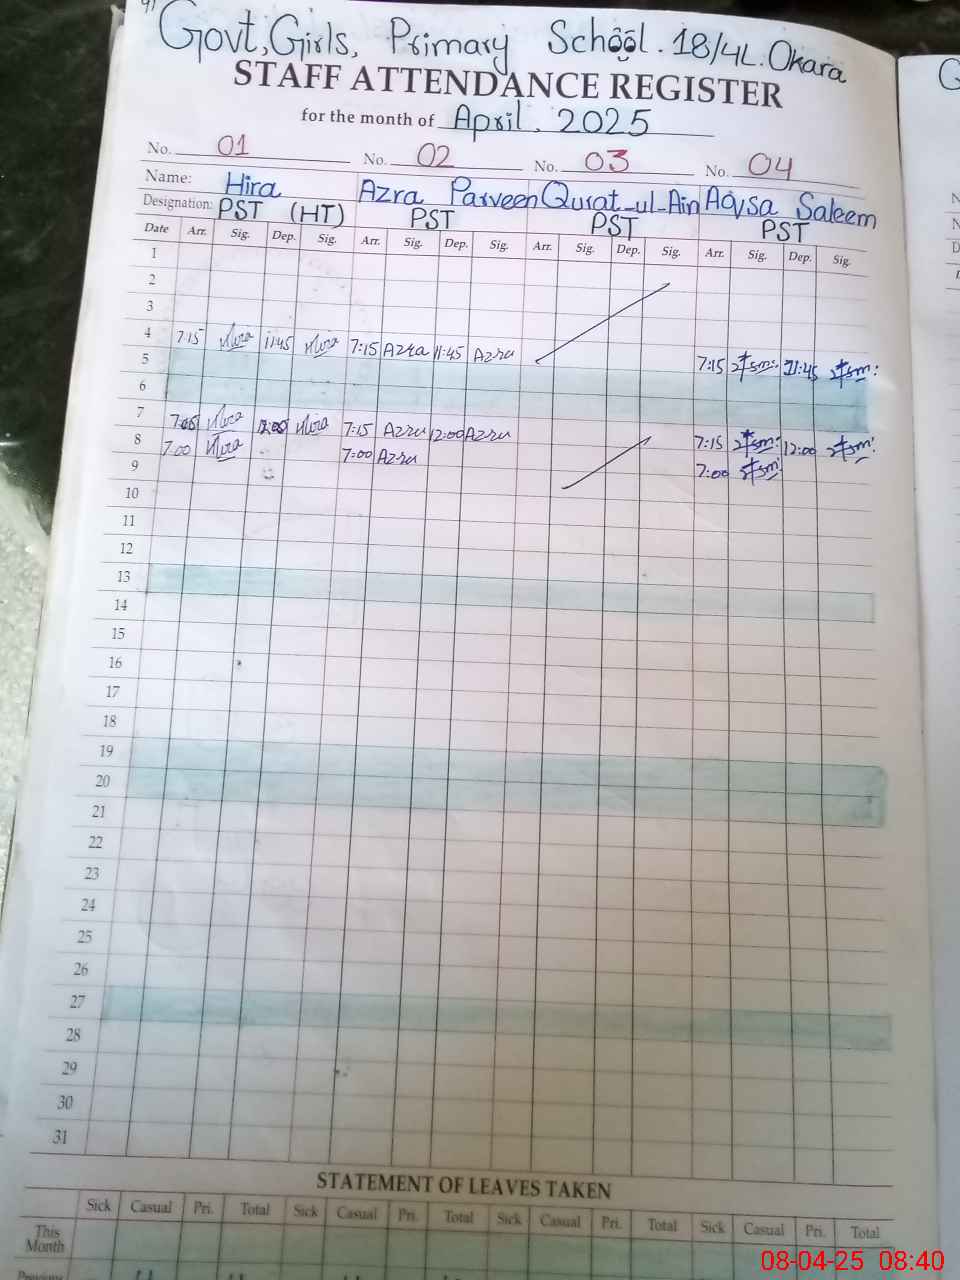 Govt, Girls, Primary School. 18/4L. Okara
STAFF ATTENDANCE REGISTER
for the month of April, 2025
No. 01 No. 02 No. 03 No. 04
Name: Hira Azra Parveen Qurat-ul-Ain Aqsa Saleem
Designation: PST (HT) PST PST PST
Date Arr. Sig. Dep. Sig. Arr. Sig. Dep. Sig. Arr. Sig. Dep. Sig. Arr. Sig. Dep. Sig.
1
2
3
4 7:15 Hira 11:45 Hira 7:15 Azra 11:45 Azra 7:15 11:45
5
6
7 7:05 Hira 12:00 Hira 7:15 Azra 12:00 Azra 7:15 12:00
8 7:00 Hira 7:00 Azra 7:00
9
10
11
12
13
14
15
16
17
18
19
20
21
22
23
24
25
26
27
28
29
30
31
STATEMENT OF LEAVES TAKEN
Sick Casual Pri. Total Sick Casual Pri. Total Sick Casual Pri. Total Sick Casual Pri. Total
This
Month
Previous
08-04-25 08:40